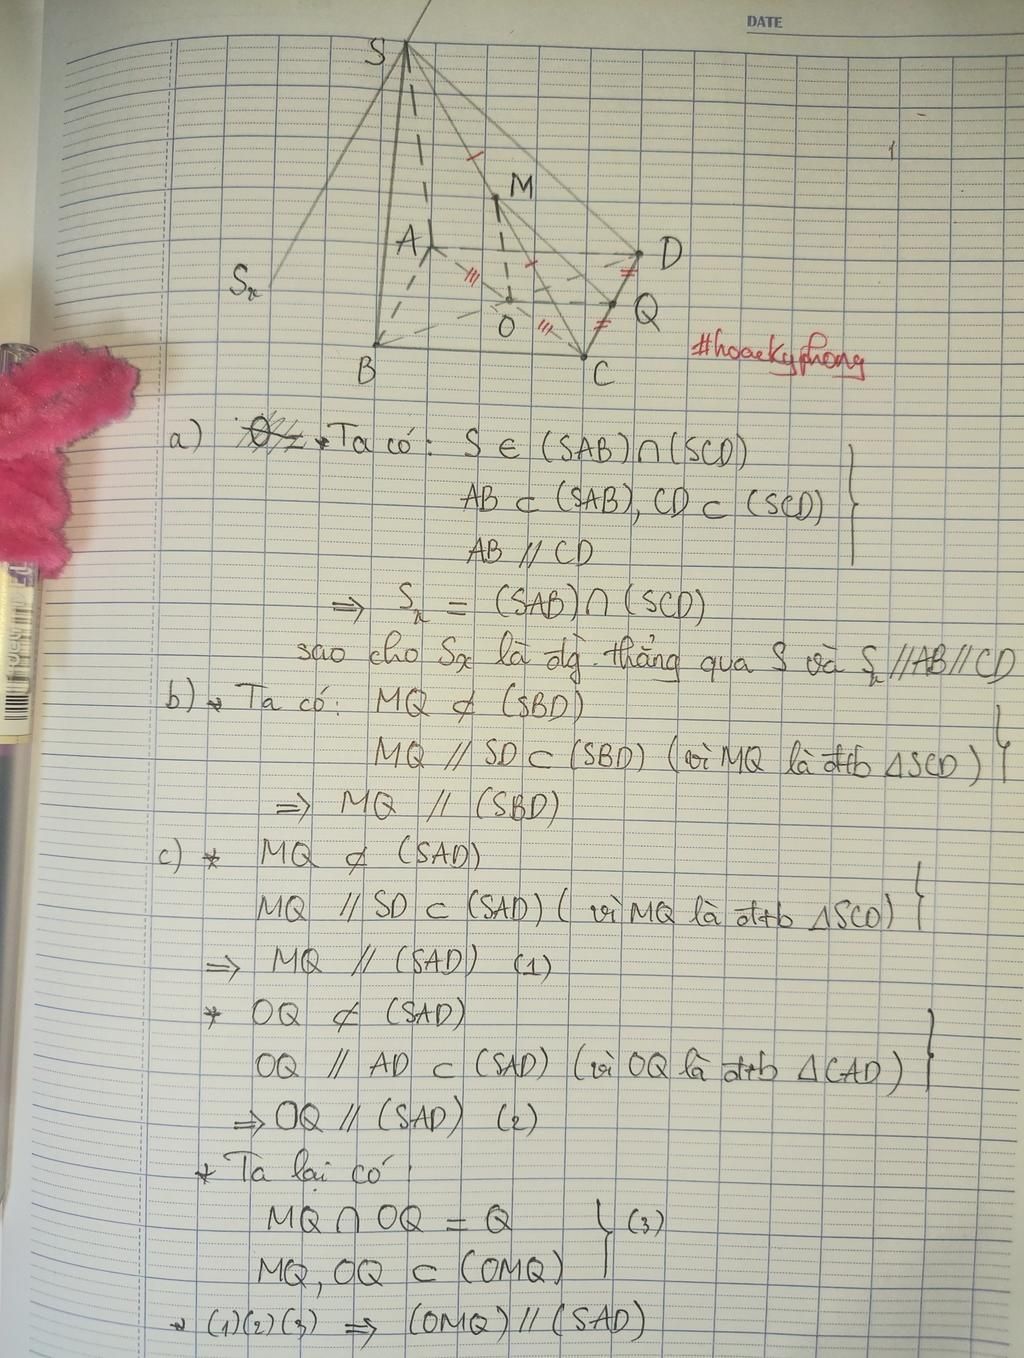 DATE
S
M
A
D
Sx
O
Q
B
C
#hoackyphong
a) * Ta có: S ∈ (SAB) ∩ (SCD)
AB ⊂ (SAB), CD ⊂ (SCD)
AB // CD
⇒ Sx = (SAB) ∩ (SCD)
sao cho Sx là đg. thẳng qua S và Sx // AB // CD
b) * Ta có: MQ ⊄ (SBD)
MQ // SD ⊂ (SBD) (vì MQ là đtb ΔSCD)
⇒ MQ // (SBD)
c) * MQ ⊄ (SAD)
MQ // SD ⊂ (SAD) (vì MQ là đtb ΔSCD)
⇒ MQ // (SAD) (1)
* OQ ⊄ (SAD)
OQ // AD ⊂ (SAD) (vì OQ là đtb ΔCAD)
⇒ OQ // (SAD) (2)
* Ta lại có:
MQ ∩ OQ = Q
(3)
MQ, OQ ⊂ (OMQ)
* (1)(2)(3) ⇒ (OMQ) // (SAD)